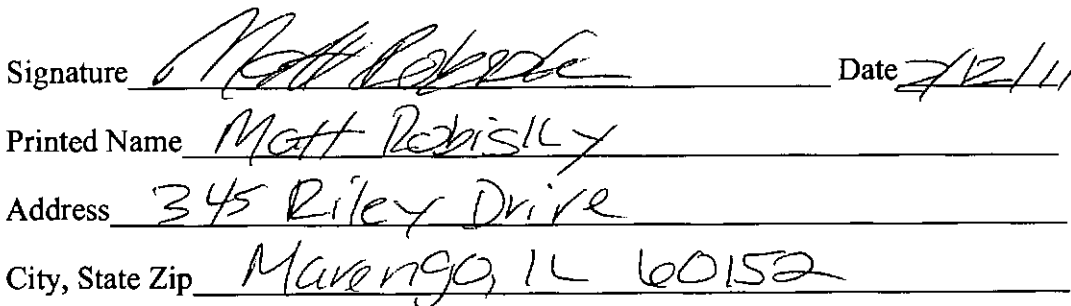 Signature Matt Robisky Date 2/12/11
Printed Name Matt Robisky
Address 345 Riley Drive
City, State Zip Marengo, IL 60152